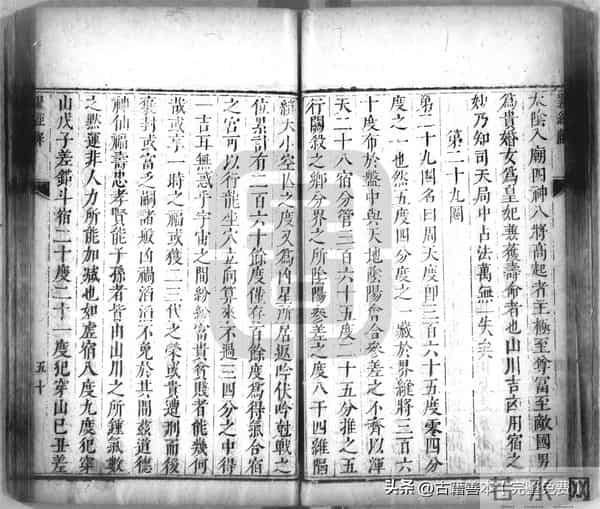 太陰入廟四神八將高起者王極至尊富至敵國男
為貴婿女為皇妃兼獲壽命者也山川吉凶用宿之
妙乃知司天局中占法萬無一失矣
第二十九圖
第二十九圖名曰周天度即三百六十五度零四分
度之一也然五度四分度之一藏於界維將三百六
十度布於盤中與天地陰陽會合參差之不齊以渾
天二十八宿分管三百六十五度二十五分推之五
行關殺之鄉分界之所陰陽參差之度八干四維隔
縫大小空亡之度又為凶星所居返吟伏吟尅戰之
位累計有二百六十餘度僅存百餘度為得氣合宿
之宮可以行龍坐穴立向算來不過三四分之中得
一吉耳無惑乎宇宙之間紛紛富貴貧賤者能幾何
哉或享一時之福或獲二三代之榮或貴遭刑而後
褒封或富乏嗣諸般凶禍滔滔不免於其間茲道德
神仙福壽忠孝賢能子孫者皆由山川之所鍾氣數
之默運非人力所能加減也如虛宿八度九度犯穿
山戊子差錯斗宿二十度二十一度犯穿山巳丑差
五十
頭條@古籍善本